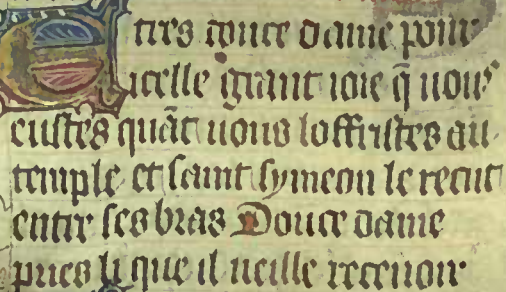 Etres douce dame pour
icelle grant ioie q̃ uous
eustes quãt uous loffristes au
temple et saint symeon le recut
entre ses bras Douce dame
pries li que il ueille receuoir